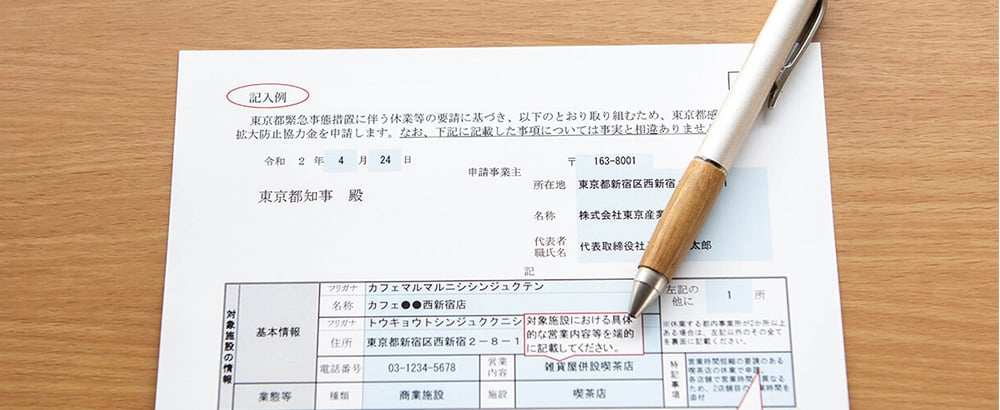 記入例
東京都緊急事態措置に伴う休業等の要請に基づき、以下のとおり取り組むため、東京都感
拡大防止協力金を申請します。なお、下記に記載した事項については事実と相違ありません
令和 2 年 4 月 24 日
〒 163-8001
申請事業主
所在地 東京都新宿区西新宿
東京都知事 殿
名称 株式会社東京産業
代表者
職氏名
代表取締役社 太郎
記
対象施設の情報
基本情報
フリガナ カフェマルマルニシシンジュクテン
名称 カフェ●●西新宿店
フリガナ トウキョウトシンジュククニシ
住所 東京都新宿区西新宿2-8-1
対象施設における具体
的な営業内容等を端的
に記載してください。
左記の
他に
1 所
※休業する都内事業所が2か所以上
ある場合は、左記以外のその全て
を裏面に記載ください。
電話番号 03-1234-5678
営業
内容
雑貨屋併設喫茶店
特記事項
営業時間短縮の要請のある
喫茶店の休業で申請。
各店舗で営業時間 異なる
ため、2店舗目の 業時間を
添付
業態等 種類 商業施設 施設 喫茶店